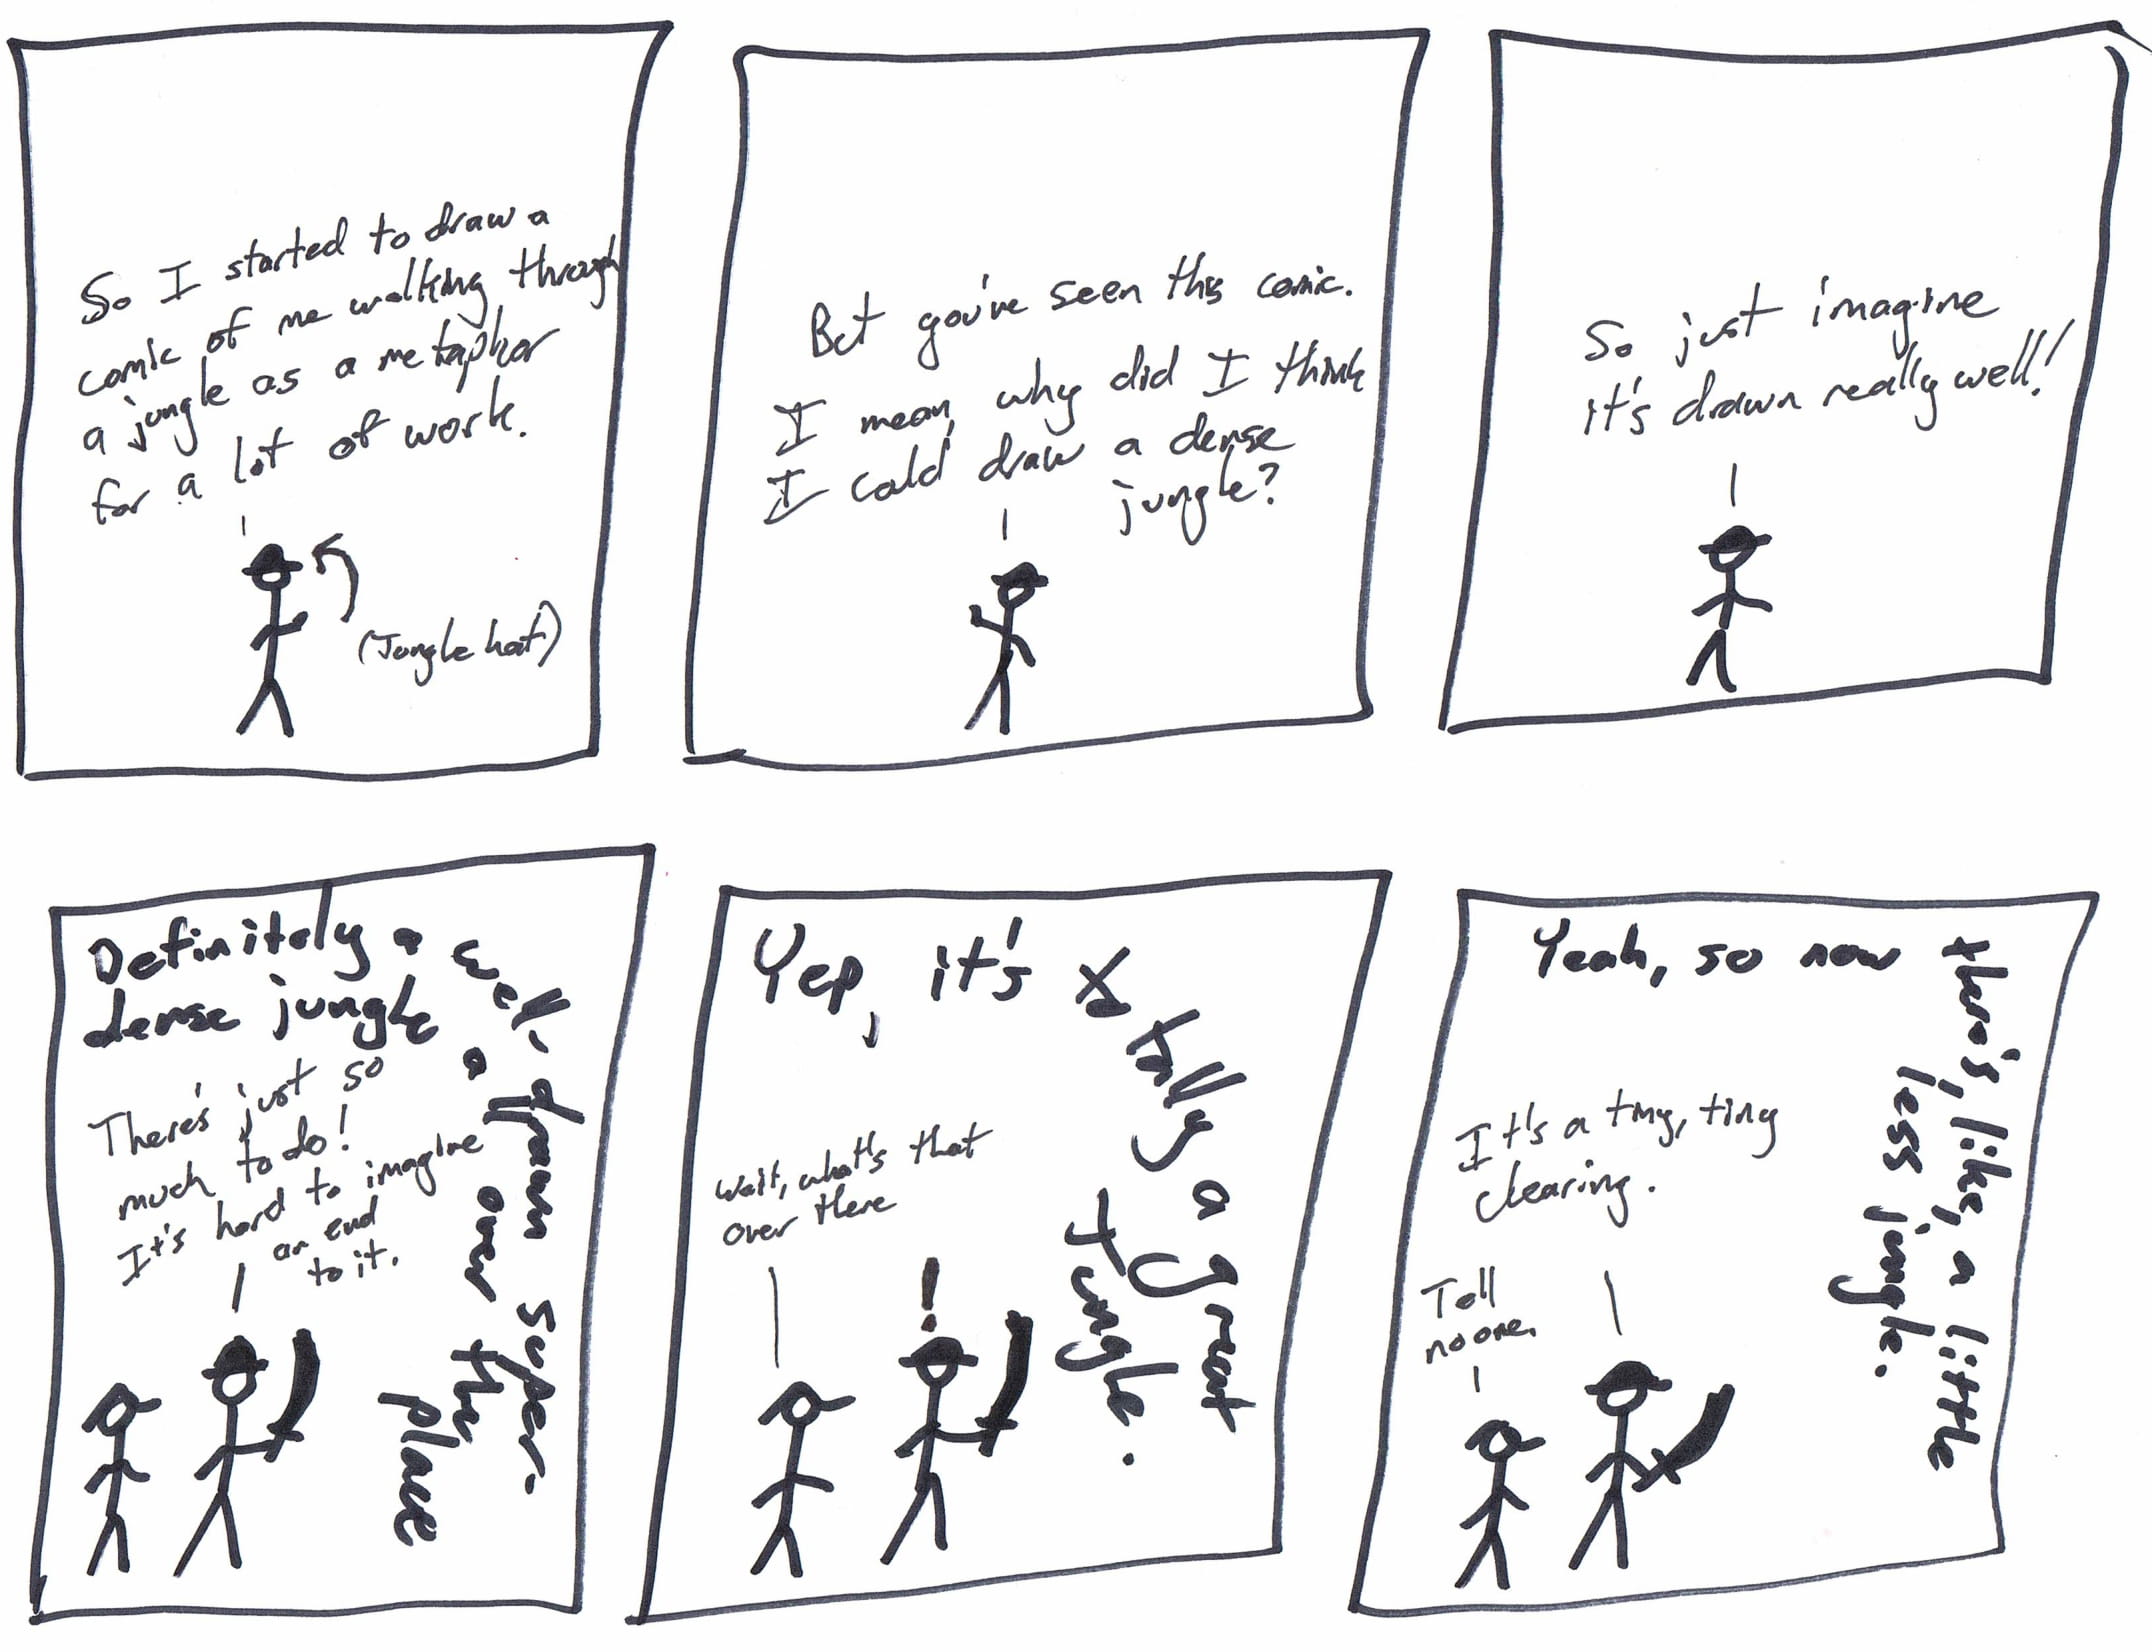 So I started to draw a
comic of me walking through
a jungle as a metaphor
for a lot of work.
(Jungle hat)
But you've seen this comic.
I mean, why did I think
I could draw a dense
jungle?
So just imagine
it's drawn really well!
Definitely a well-drawn super-
dense jungle all over the place
There's just so
much to do!
It's hard to imagine
an end
to it.
Yep, it's totally a great
Jungle.
Wait, what's that
over there
!
Yeah, so now there's, like, a little
less jungle.
It's a tiny, tiny
clearing.
Tell
no one.